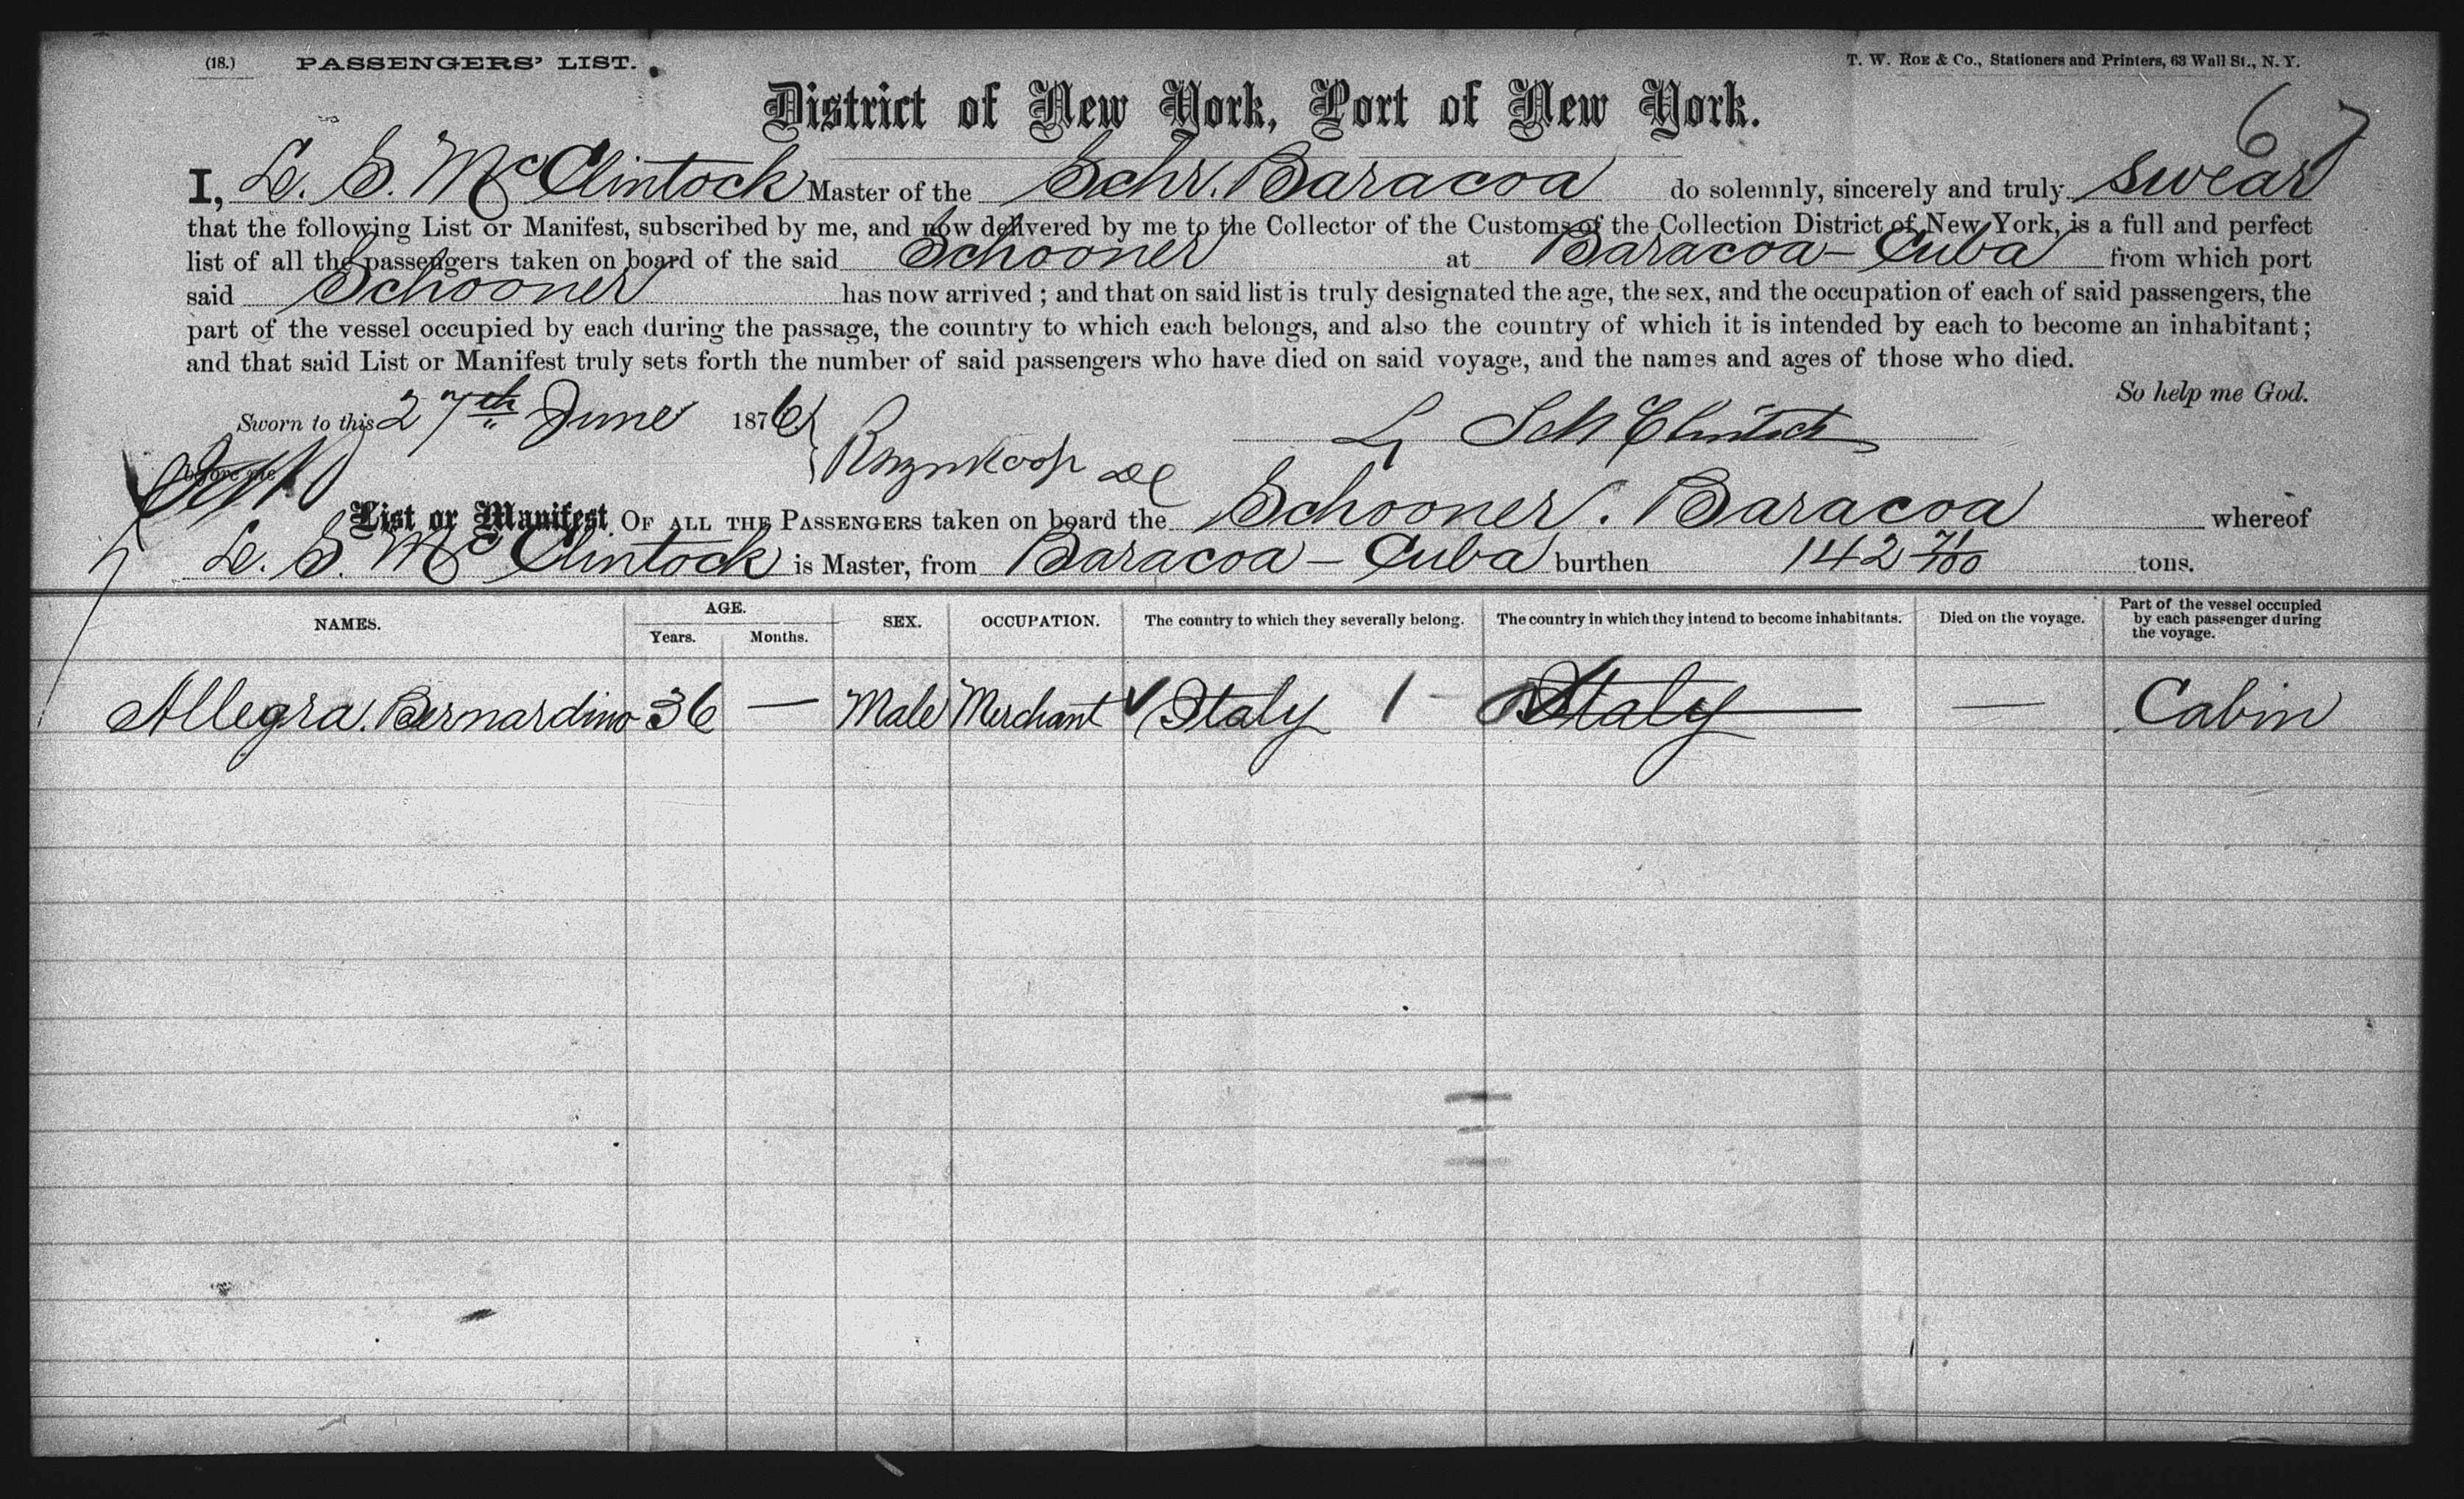 (18.) PASSENGERS' LIST. T. W. ROE & Co., Stationers and Printers, 63 Wall St., N. Y.
District of New York, Port of New York.
67
I, L. S. McClintock Master of the Schr. Baracoa do solemnly, sincerely and truly swear
that the following List or Manifest, subscribed by me, and now delivered by me to the Collector of the Customs of the Collection District of New York, is a full and perfect
list of all the passengers taken on board of the said Schooner at Baracoa - Cuba from which port
said Schooner has now arrived; and that on said list is truly designated the age, the sex, and the occupation of each of said passengers, the
part of the vessel occupied by each during the passage, the country to which each belongs, and also the country of which it is intended by each to become an inhabitant;
and that said List or Manifest truly sets forth the number of said passengers who have died on said voyage, and the names and ages of those who died.
So help me God.
Sworn to this 27th June 1876 L S McClintock
before me
List or Manifest OF ALL THE PASSENGERS taken on board the Schooner. Baracoa whereof
L. S. McClintock is Master, from Baracoa - Cuba burthen 142 71/100 tons.
NAMES. AGE. Years. Months. SEX. OCCUPATION. The country to which they severally belong. The country in which they intend to become inhabitants. Died on the voyage. Part of the vessel occupied by each passenger during the voyage.
Allegra. Bernardino 36 — Male Merchant Italy 1 - Italy — Cabin